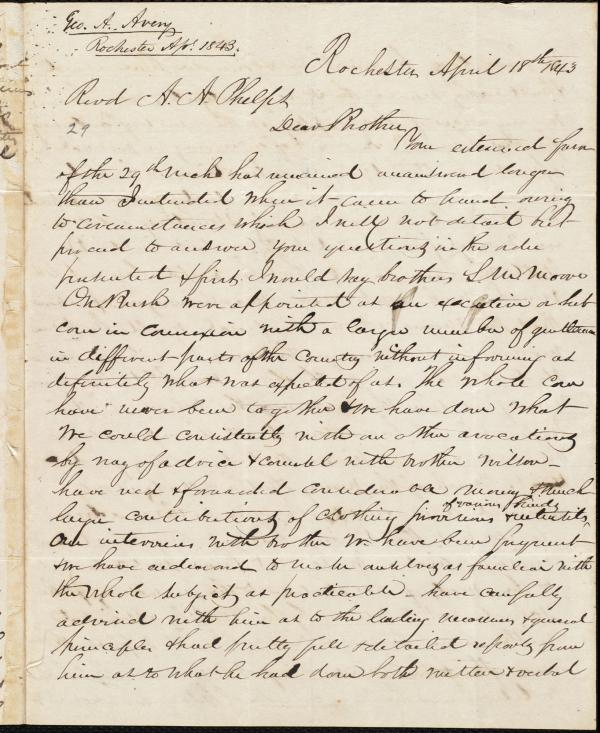 Geo. A. Avery
Rochester Apl. 1843.
Rochester April 18th 1843
Revd A. A. Phelps
29
Dear Brother
Your esteemed favor
of the 29th Inst has remained unanswered longer
than I intended when it came to hand owing
to circumstances which I will not detail but
proceed to answer your questions in the order
presented & first I would say brothers L. M. Moore
Rush were appointed as an executive or sub
com in connexion with a large number of gentlemen
in different parts of the Country without informing us
definitely what was expected of us. The whole com
have never been together & we have done what
we could consistently with our other avocations
by way of advice & counsel with brother Wilson
have recd & forwarded considerable money & much
of various kinds
large contributions of clothing provisions & utensils
Our interviews with brother W. have been frequent
& we have endeavored to make ourselves as familiar with
the whole subject as practicable - have carefully
advised with him as to the leading measures & general
principles & had pretty full & detailed reports from
him as to what he had done both written & verbal